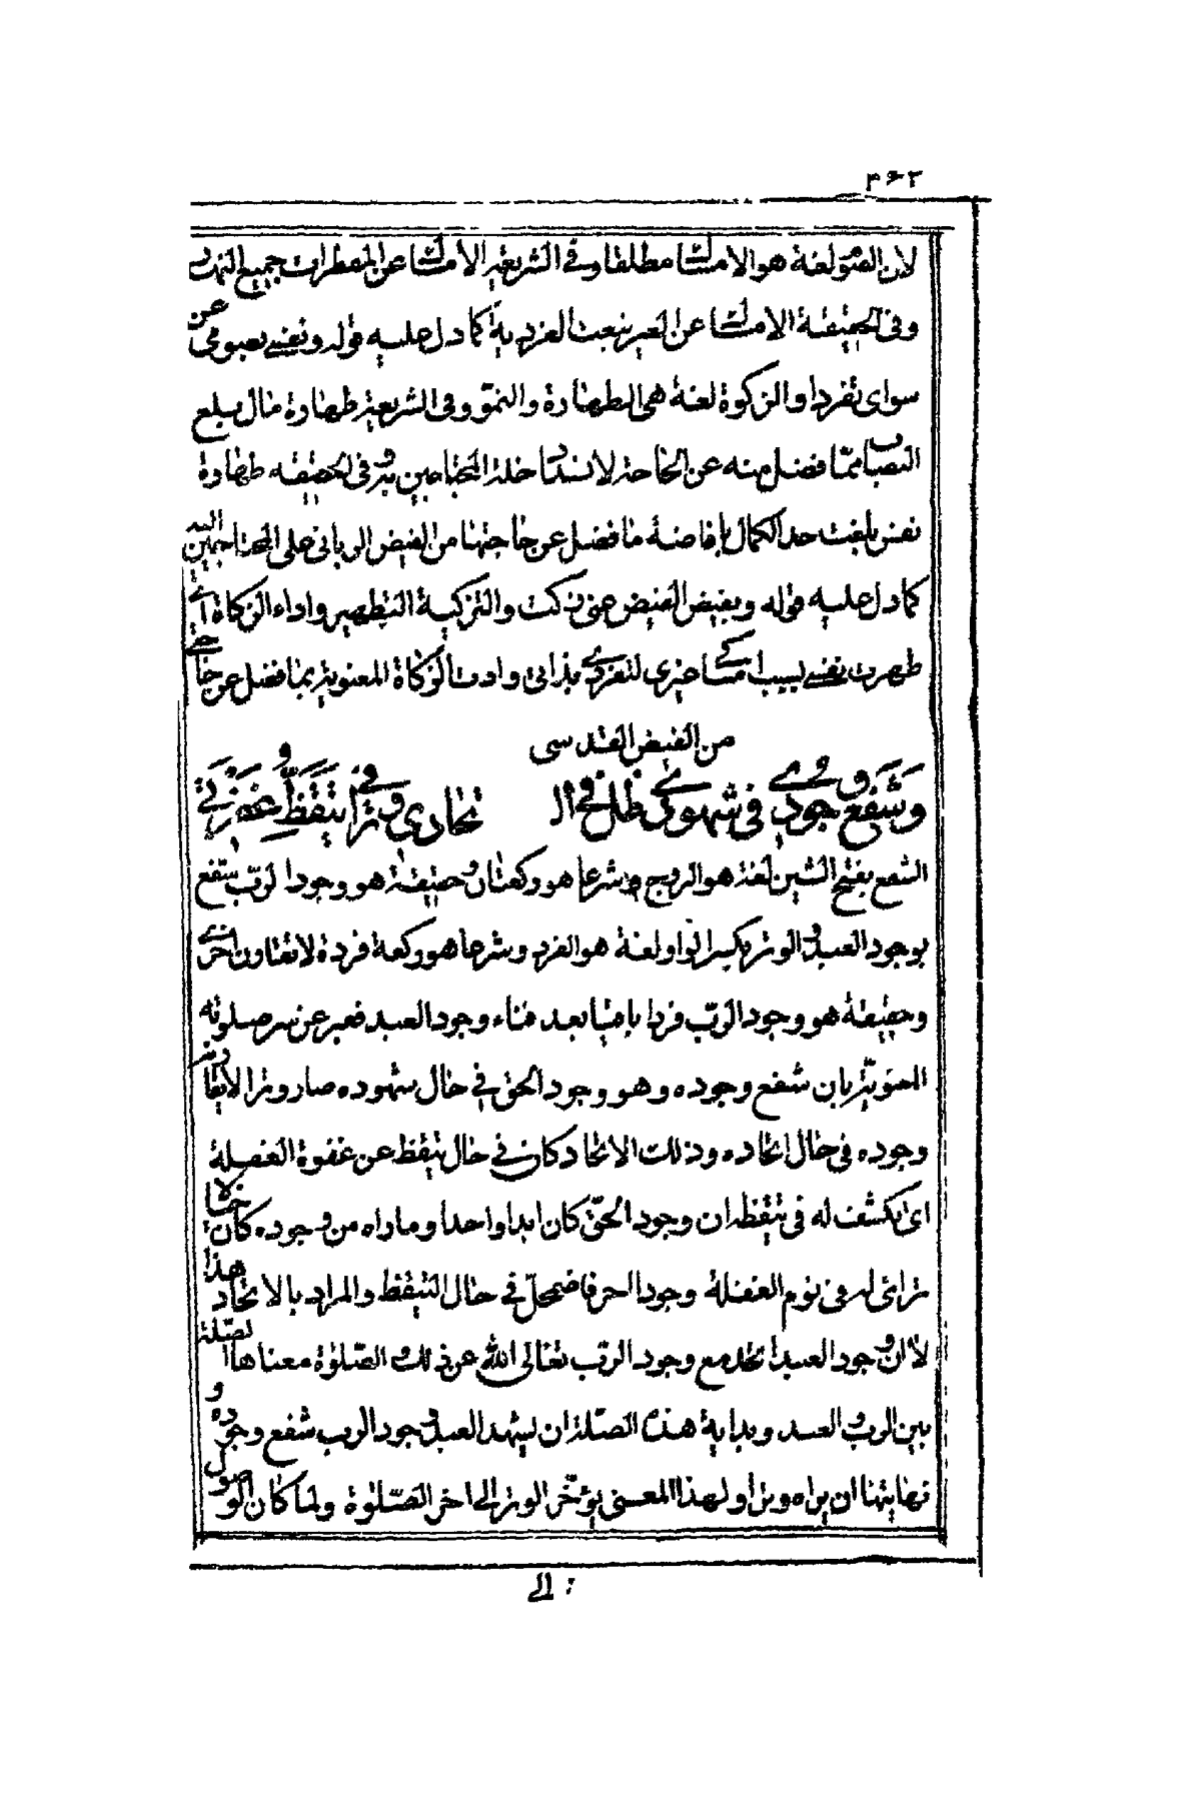 ٣٦٢
لان الصوم لغة هو الامساك مطلقا وفى الشريعة الامساك عن المفطرات جميع النهار
وفى الحقيقة الامساك عن الغير بنعت الفردية كما دل عليه قوله ونفسى بصومى عن
سواى تفردا والزكوة لغة هى الطهارة والنمو وفى الشريعة طهارة مال بلغ
النصاب مما فضل منه عن الحاجة لانسداد خلة المحتاجين وفى الحقيقه طهارة
نفس بلغت حد الكمال بافاضة ما فضل عن حاجتها من الفيض الربانى على المحتاجين اليه
كما دل عليه قوله وبفيض الفيض عنى زكت والتزكية التطهير واداء الزكاة اى
طهرت نفسى بسبب امساكى عن غيرى لتفردى بذاتى وادت الزكاة المعنوية بما فضل عن حاجتى
من الفيض القدسى
وشفع وجودى فى شهودى ظل فى الـ اتحادى وترا فى تيقظ غفوتى
الشفع بفتح الشين لغة هو الزوج وشرعا هو ركعتان وحقيقة هو وجود الرب يشفع
بوجود العبد والوتر بكسر الواو لغة هو الفرد وشرعا هو ركعة فردة لا تقارن اخرى
وحقيقة هو وجود الرب فردا باقيا بعد فناء وجود العبد فعبر عن سر صلوته
المعنوية بان شفع وجوده وهو وجود الحق فى حال شهوده صار وترا لاتحاد
وجوده فى حال اتحاده وذلك الاتحاد كان فى حال تيقظ عن غفوة الغفلة
اى انكشف له فى تيقظه ان وجود الحق كان ابدا واحدا وما راه من وجوده كان خيالا
تراى له فى نوم الغفلة وجودا اخر فاضمحل فى حال التيقظ والمراد بالاتحاد هذا
لا ان وجود العبد اتحد مع وجود الرب تعالى الله عن ذلك والصلوة معناها الصلة
بين الرب والعبد وبداية هذه الصلة ان يشهد العبد وجود الرب شفع وجوده و
نهايتها ان يراه وترا ولهذا المعنى يؤخر الوتر الى اخر الصلوة ولما كان الوصول
الى